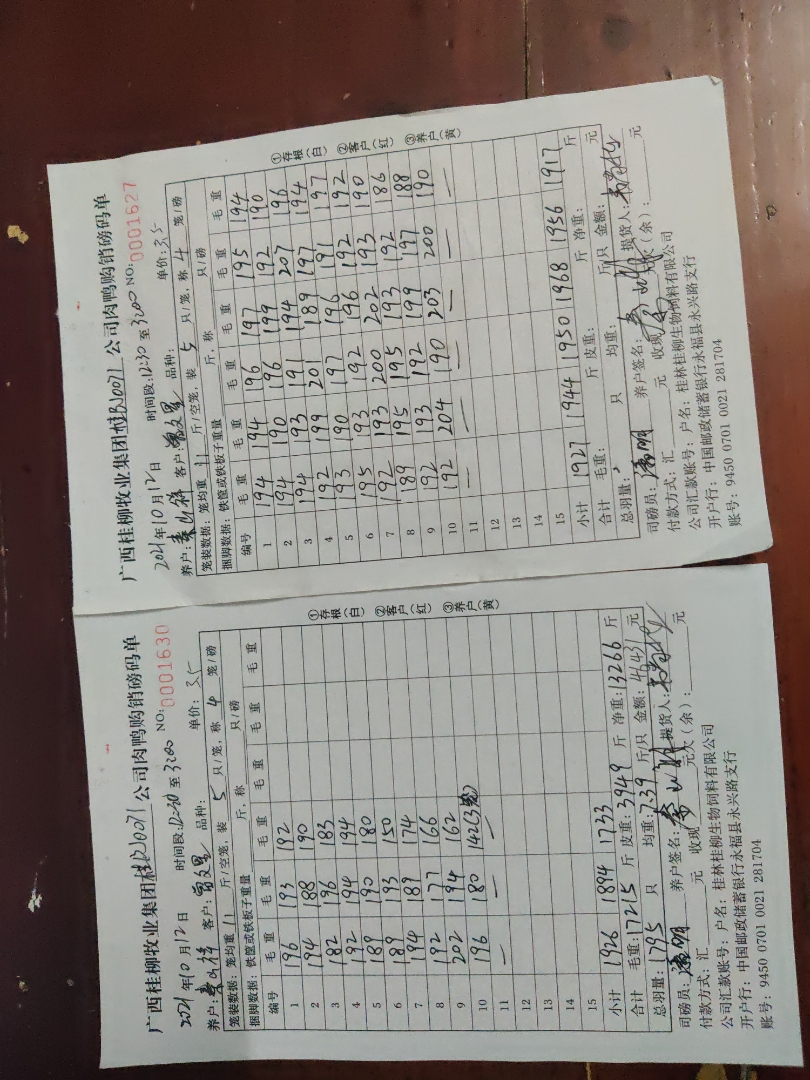 广西桂柳牧业集团 公司肉鸭购销磅码单
NO: 0001630
2021年10月12日 时间段:12:30至3:00 单价: 3.5
养户: 客户: 品种:
笼装数据: 笼均重 11 斤/空笼, 装 5 只/笼, 称 4 笼/磅
捆脚数据: 铁筐或铁板子重量 斤, 称 只/磅
编号 毛重 毛重 毛重 毛重 毛重 毛重
1 196 193 192
2 194 188 190
3 182 196 183
4 192 194 194
5 189 190 180
6 189 193 150
7 184 189 174
8 192 177 166
9 202 194 162
10 196 180 142(3笼)
11 — — —
12
13
14
15
小计 1926 1894 1733
合计 毛重: 17215 斤 皮重: 3949 斤 净重: 13266 斤
总羽量: 1795 只 均重: 7.39 斤/只 金额: 46431 元
司磅员: 养户签名: 提货人:
付款方式: 汇 元 收现 元欠(余): 元
公司汇款账号: 户名: 桂林桂柳生物饲料有限公司
开户行: 中国邮政储蓄银行永福县永兴路支行
账号: 9450 0701 0021 281704
①存根(白) ②客户(红) ③养户(黄)
广西桂柳牧业集团 公司肉鸭购销磅码单
NO: 0001627
2021年10月12日 时间段:12:30至3:00 单价: 3.5
养户: 客户: 品种:
笼装数据: 笼均重 11 斤/空笼, 装 5 只/笼, 称 4 笼/磅
捆脚数据: 铁筐或铁板子重量 斤, 称 只/磅
编号 毛重 毛重 毛重 毛重 毛重 毛重
1 194 194 196 197 195 194
2 194 190 196 199 192 190
3 194 193 191 194 207 196
4 192 199 201 189 197 194
5 193 190 197 196 191 197
6 195 193 192 196 192 192
7 192 193 200 202 193 190
8 189 195 195 193 192 186
9 192 193 192 199 197 188
10 192 204 190 203 200 190
11 — — — — — —
12
13
14
15
小计 1927 1944 1950 1968 1956 1917
合计 毛重: 斤 皮重: 斤 净重: 斤
总羽量: 只 均重: 斤/只 金额: 元
司磅员: 养户签名: 提货人:
付款方式: 汇 元 收现 元欠(余): 元
公司汇款账号: 户名: 桂林桂柳生物饲料有限公司
开户行: 中国邮政储蓄银行永福县永兴路支行
账号: 9450 0701 0021 281704
①存根(白) ②客户(红) ③养户(黄)